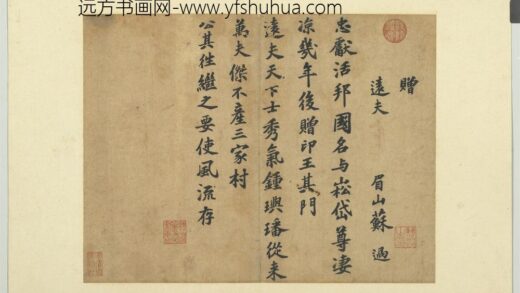 远方书画网-www.yfshuhua.com
贈
遠夫 眉山蘇過
忠獻活邦國名与崧岱尊凄
凉幾年後贈印王其門
遠夫天下士秀氣鍾璵璠從来
萬夫傑不產三家村
公其往繼之要使風流存